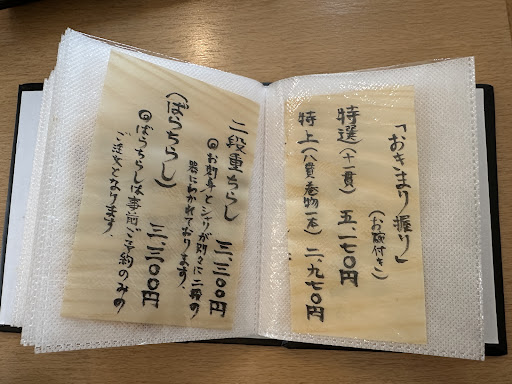 「おきまり握り」
(お碗付き)
特選(十一貫) 五、一七〇円
特上(八貫巻物一本) 二、九七〇円
二段重ちらし 三、三〇〇円
◎お刺身とシャリが別々に二段の
器にわかれております。
(ばらちらし) 三、三〇〇円
◎ばらちらしは事前ご予約のみの
ご注文となります。